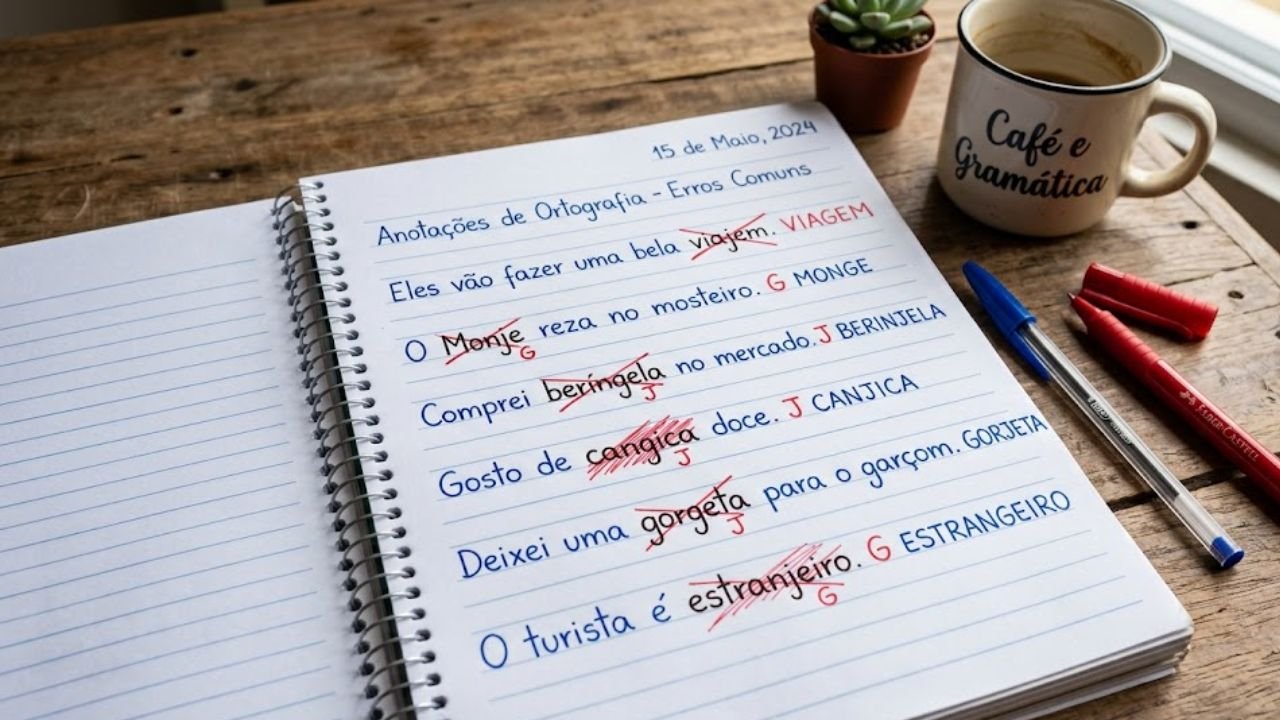 15 de Maio, 2024
Anotações de Ortografia - Erros Comuns
Eles vão fazer uma bela viajem. VIAGEM
O Monje reza no mosteiro. G MONGE
G
Comprei beringela no mercado. J BERINJELA
J
Gosto de cangica doce. J CANJICA
J
Deixei uma gorgeta para o garçom. GORJETA
J
O turista é estranjeiro. G ESTRANGEIRO
G
Café e
Gramática